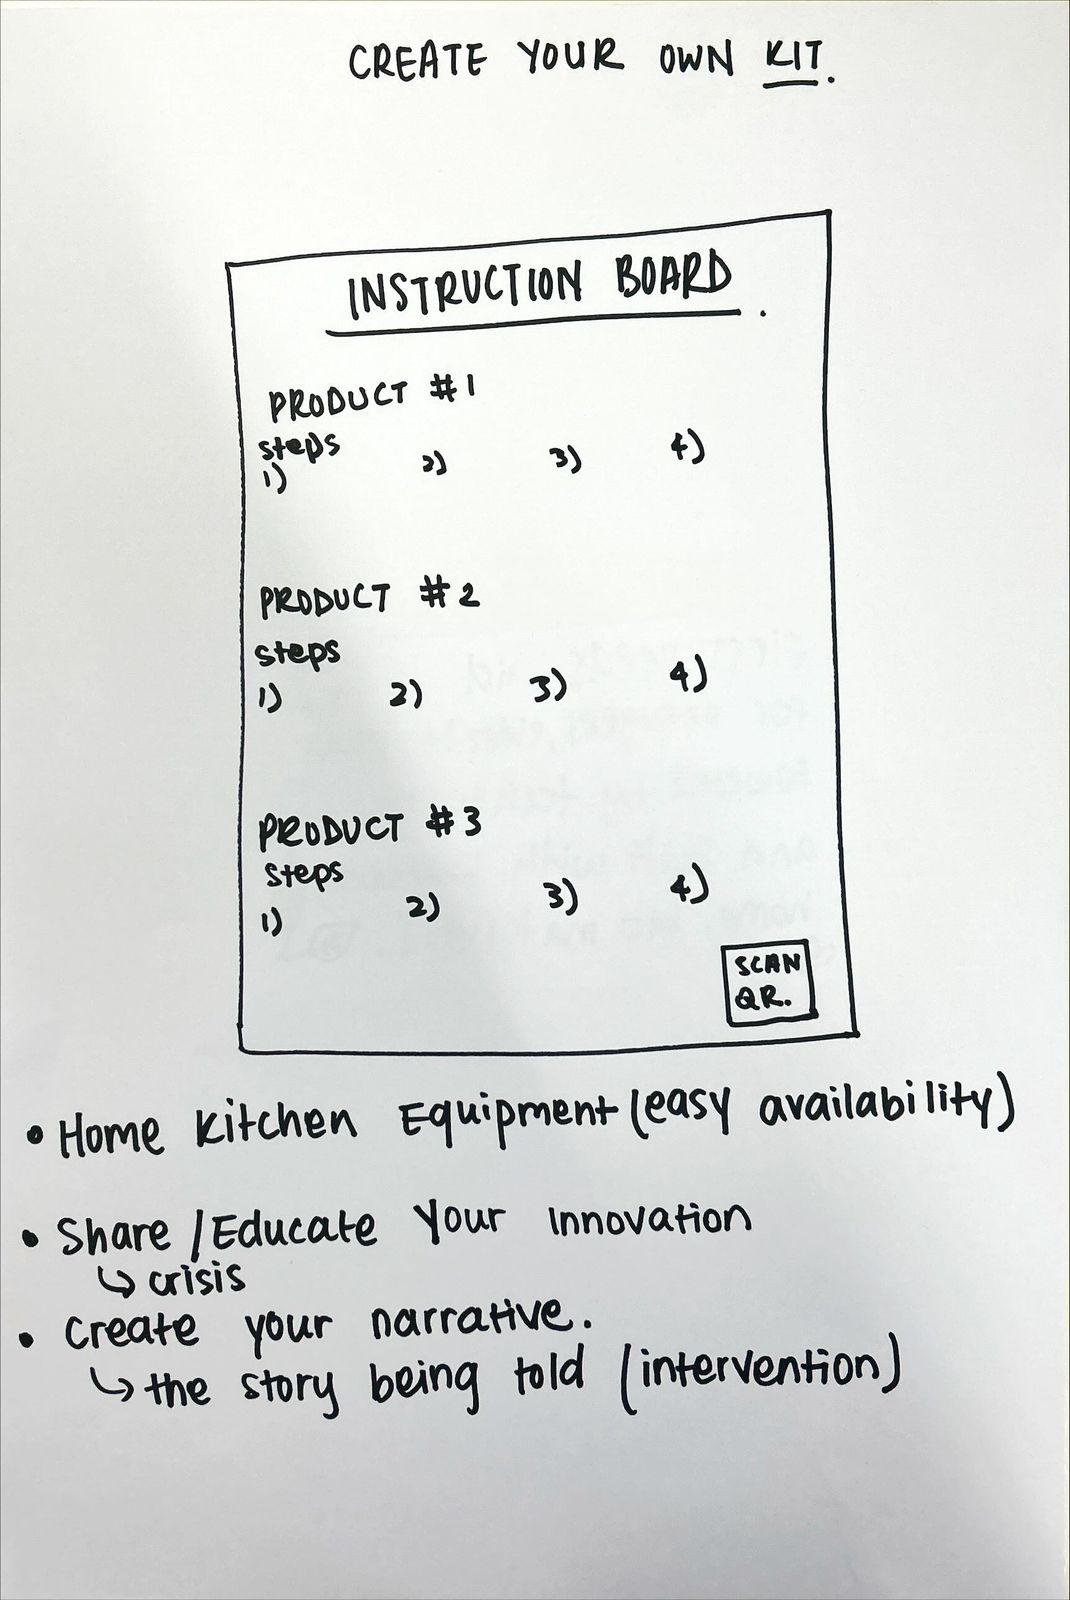 CREATE YOUR OWN KIT.
INSTRUCTION BOARD.
PRODUCT #1
steps
1) 2) 3) 4)
PRODUCT #2
steps
1) 2) 3) 4)
PRODUCT #3
steps
1) 2) 3) 4)
SCAN
QR.
• Home Kitchen Equipment (easy availability)
• Share/Educate Your Innovation
↳ crisis
• Create your narrative.
↳ the story being told (intervention)